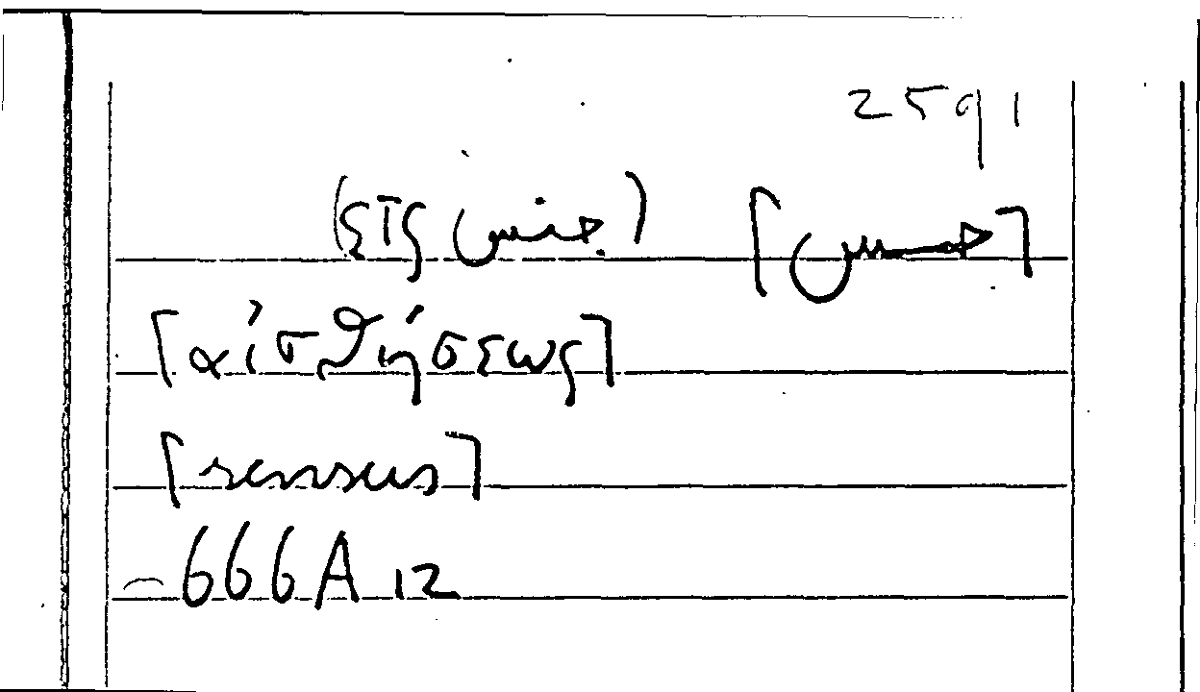 2591
[حس] (جنس)
[αἰσθήσεως]
[sensus]
–666A 12